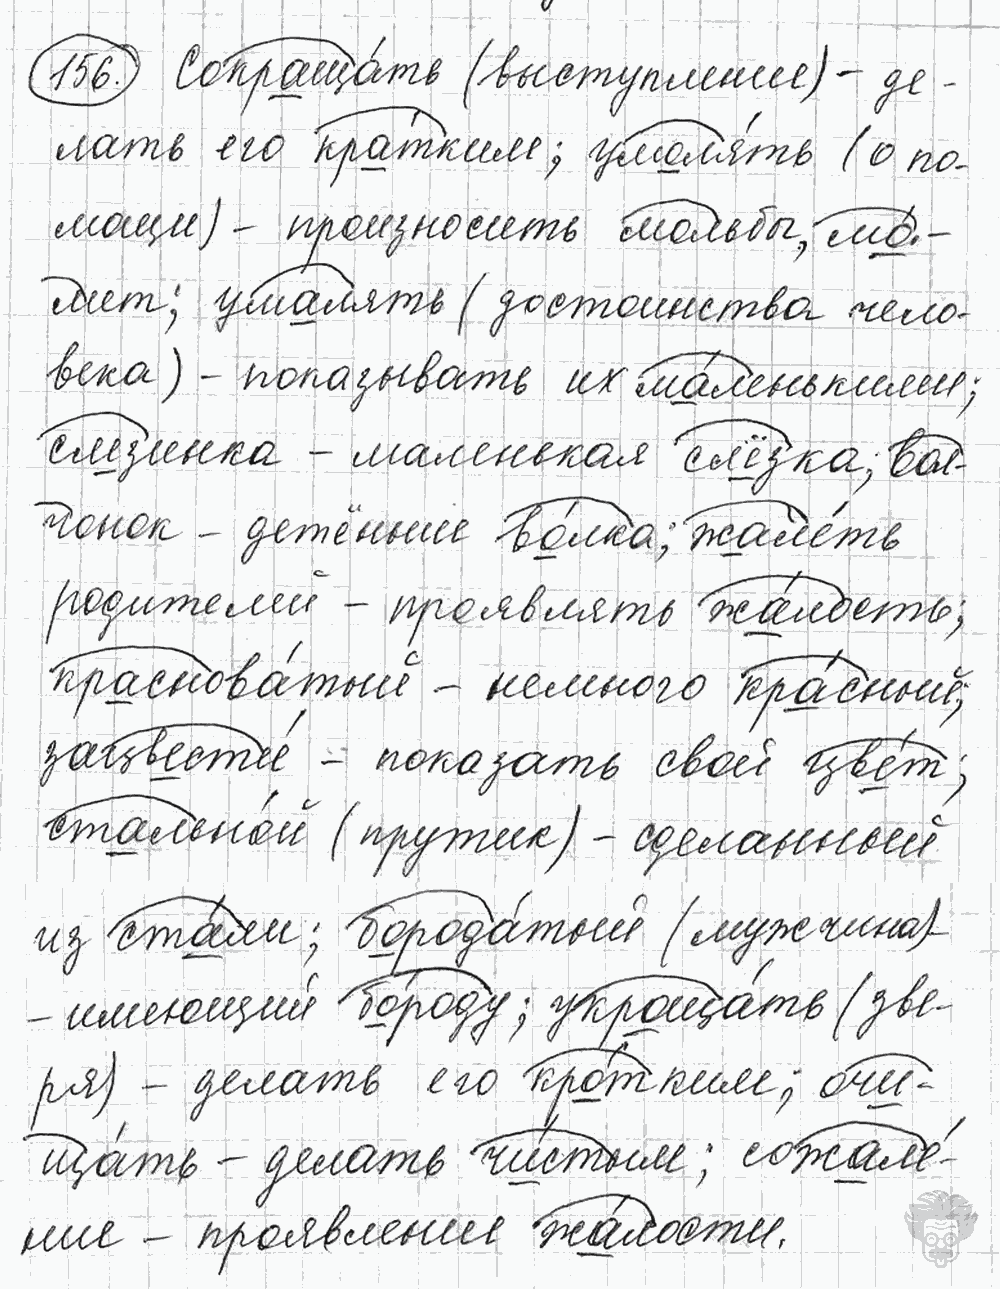 156. Сокраща́ть (выступление) – де-
лать его кра́тким; умоля́ть (о по-
мощи) – произносить мольбы, мо́-
лит; умалять (достоинства чело-
века) – показывать их ма́ленькими;
слезинка – маленькая слёзка; вол-
чонок – детёныш во́лка; жале́ть
родителей – проявлять жа́лость;
краснова́тый – немного кра́сный;
зацвести́ – показать свой цве́т;
стально́й (прутик) – сделанный
из ста́ли; борода́тый (мужчина) –
– имеющий бо́роду; укроща́ть (зве-
ря) – делать его кро́тким; очи-
ща́ть – делать чи́стым; сожале́-
ние – проявление жа́лости.